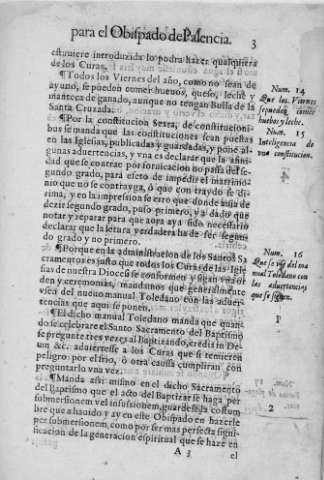 para el Obispado de Palencia. 3
estuuiere introduzida lo podra hazer qualquiera
de los Curas.
¶Todos los Viernes del año, como no sean de
ayuno, se pueden comer hueuos, queso, leche y
manteca de ganado, aunque no tengan Bulla de la
Santa Cruzada.
¶Por la constitucion sexta, de constitucioni-
bus se manda que las constituciones sean puestas
en las Iglesias, publicadas y guardadas, y pone al-
gunas aduertencias, y vna es declarar que la afini-
dad que se contrae por fornicacion no passa del se-
gundo grado, para efeto de impedir el matrimo-
nio que no se contrayga, ò que con traydo se di-
rima, y en la impression se erro que donde auia de
dezir segundo grado, puso primero, y a dado que
notar y reparar para que aora aya sido necessario
declarar que la letura verdadera ha de ser segun-
do grado y no primero.
¶Porque en la administracion de los Santos Sa
cramentos es justo que todos los Curas de las Igle
sias de nuestra Diocesi se conformen y sigan vna or
den y ceremonias, mandamos que generalmente
vsen del nueuo manual Toledano con las aduer-
tencias que aqui se ponen.
¶El dicho manual Toledano manda que quan-
do se celebrare el Santo Sacramento del Baptismo
se pregunte tres vezes al Baptizando, credis in De-
um &c. aduiertesse a los Curas que si temieren
peligro por el frio, ò otra causa cumpliran con
preguntarlo vna vez.
¶Manda assi mismo en el dicho Sacramento
del Baptismo que el acto del Baptizar se haga per
submersionem vel infusionem, guardese la costum-
bre que a hauido y ay en este Obispado en hazerle
per submersionem, como por ser mas perfecta signi-
ficacion de la generacion espiritual que se haze en
A 3 el
Num. 14
Que los Viernes
se pueda comer
hueuos y leche.
Num. 15
Inteligencia de
vna constitucion.
Num. 16
Que se vse del ma
nual Toledano con
las aduertencias
que se siguen.
1
2